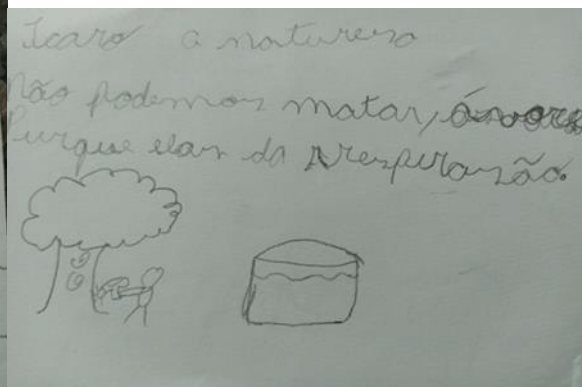 Icaro a natureza
Não podemos matar, árvore
Purque elas da Respirasão.